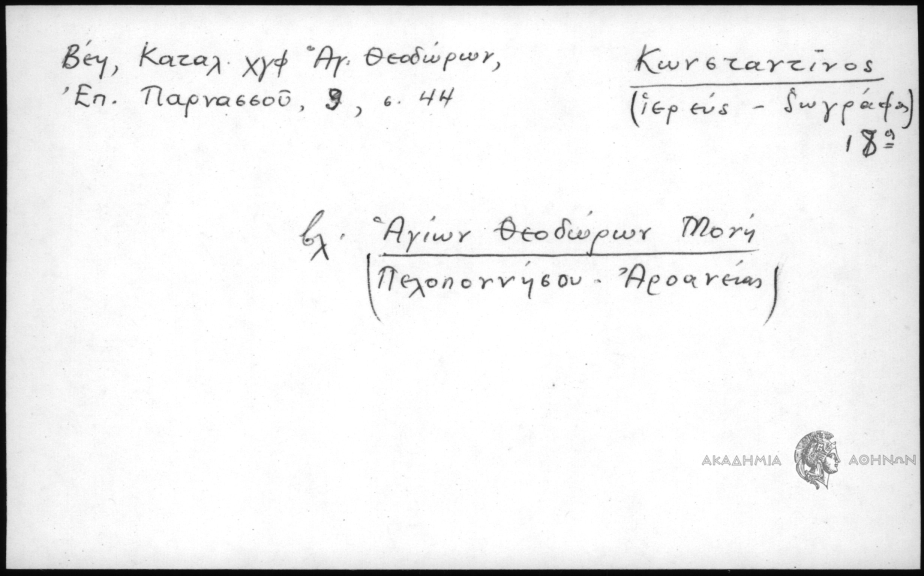 Βέη, Καταλ. χγφ Ἁγ. Θεοδώρων,
Ἐπ. Παρνασσοῦ, 9, σ. 44
Κωνσταντῖνος
(ἱερεύς - ζωγράφος)
18ος
βλ. Ἁγίων Θεοδώρων Μονή
(Πελοποννήσου - Ἀροανείας)
ΑΚΑΔΗΜΙΑ ΑΘΗΝΩΝ